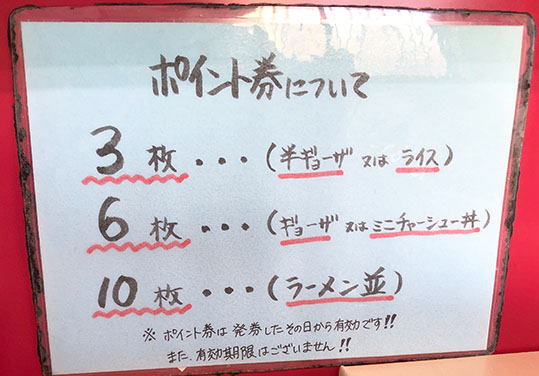 ポイント券について
3枚・・・(半ギョーザ 又は ライス)
6枚・・・(ギョーザ 又は ミニチャーシュー丼)
10枚・・・(ラーメン並)
※ ポイント券は 発券したその日から有効です!!
また、有効期限はございません!!